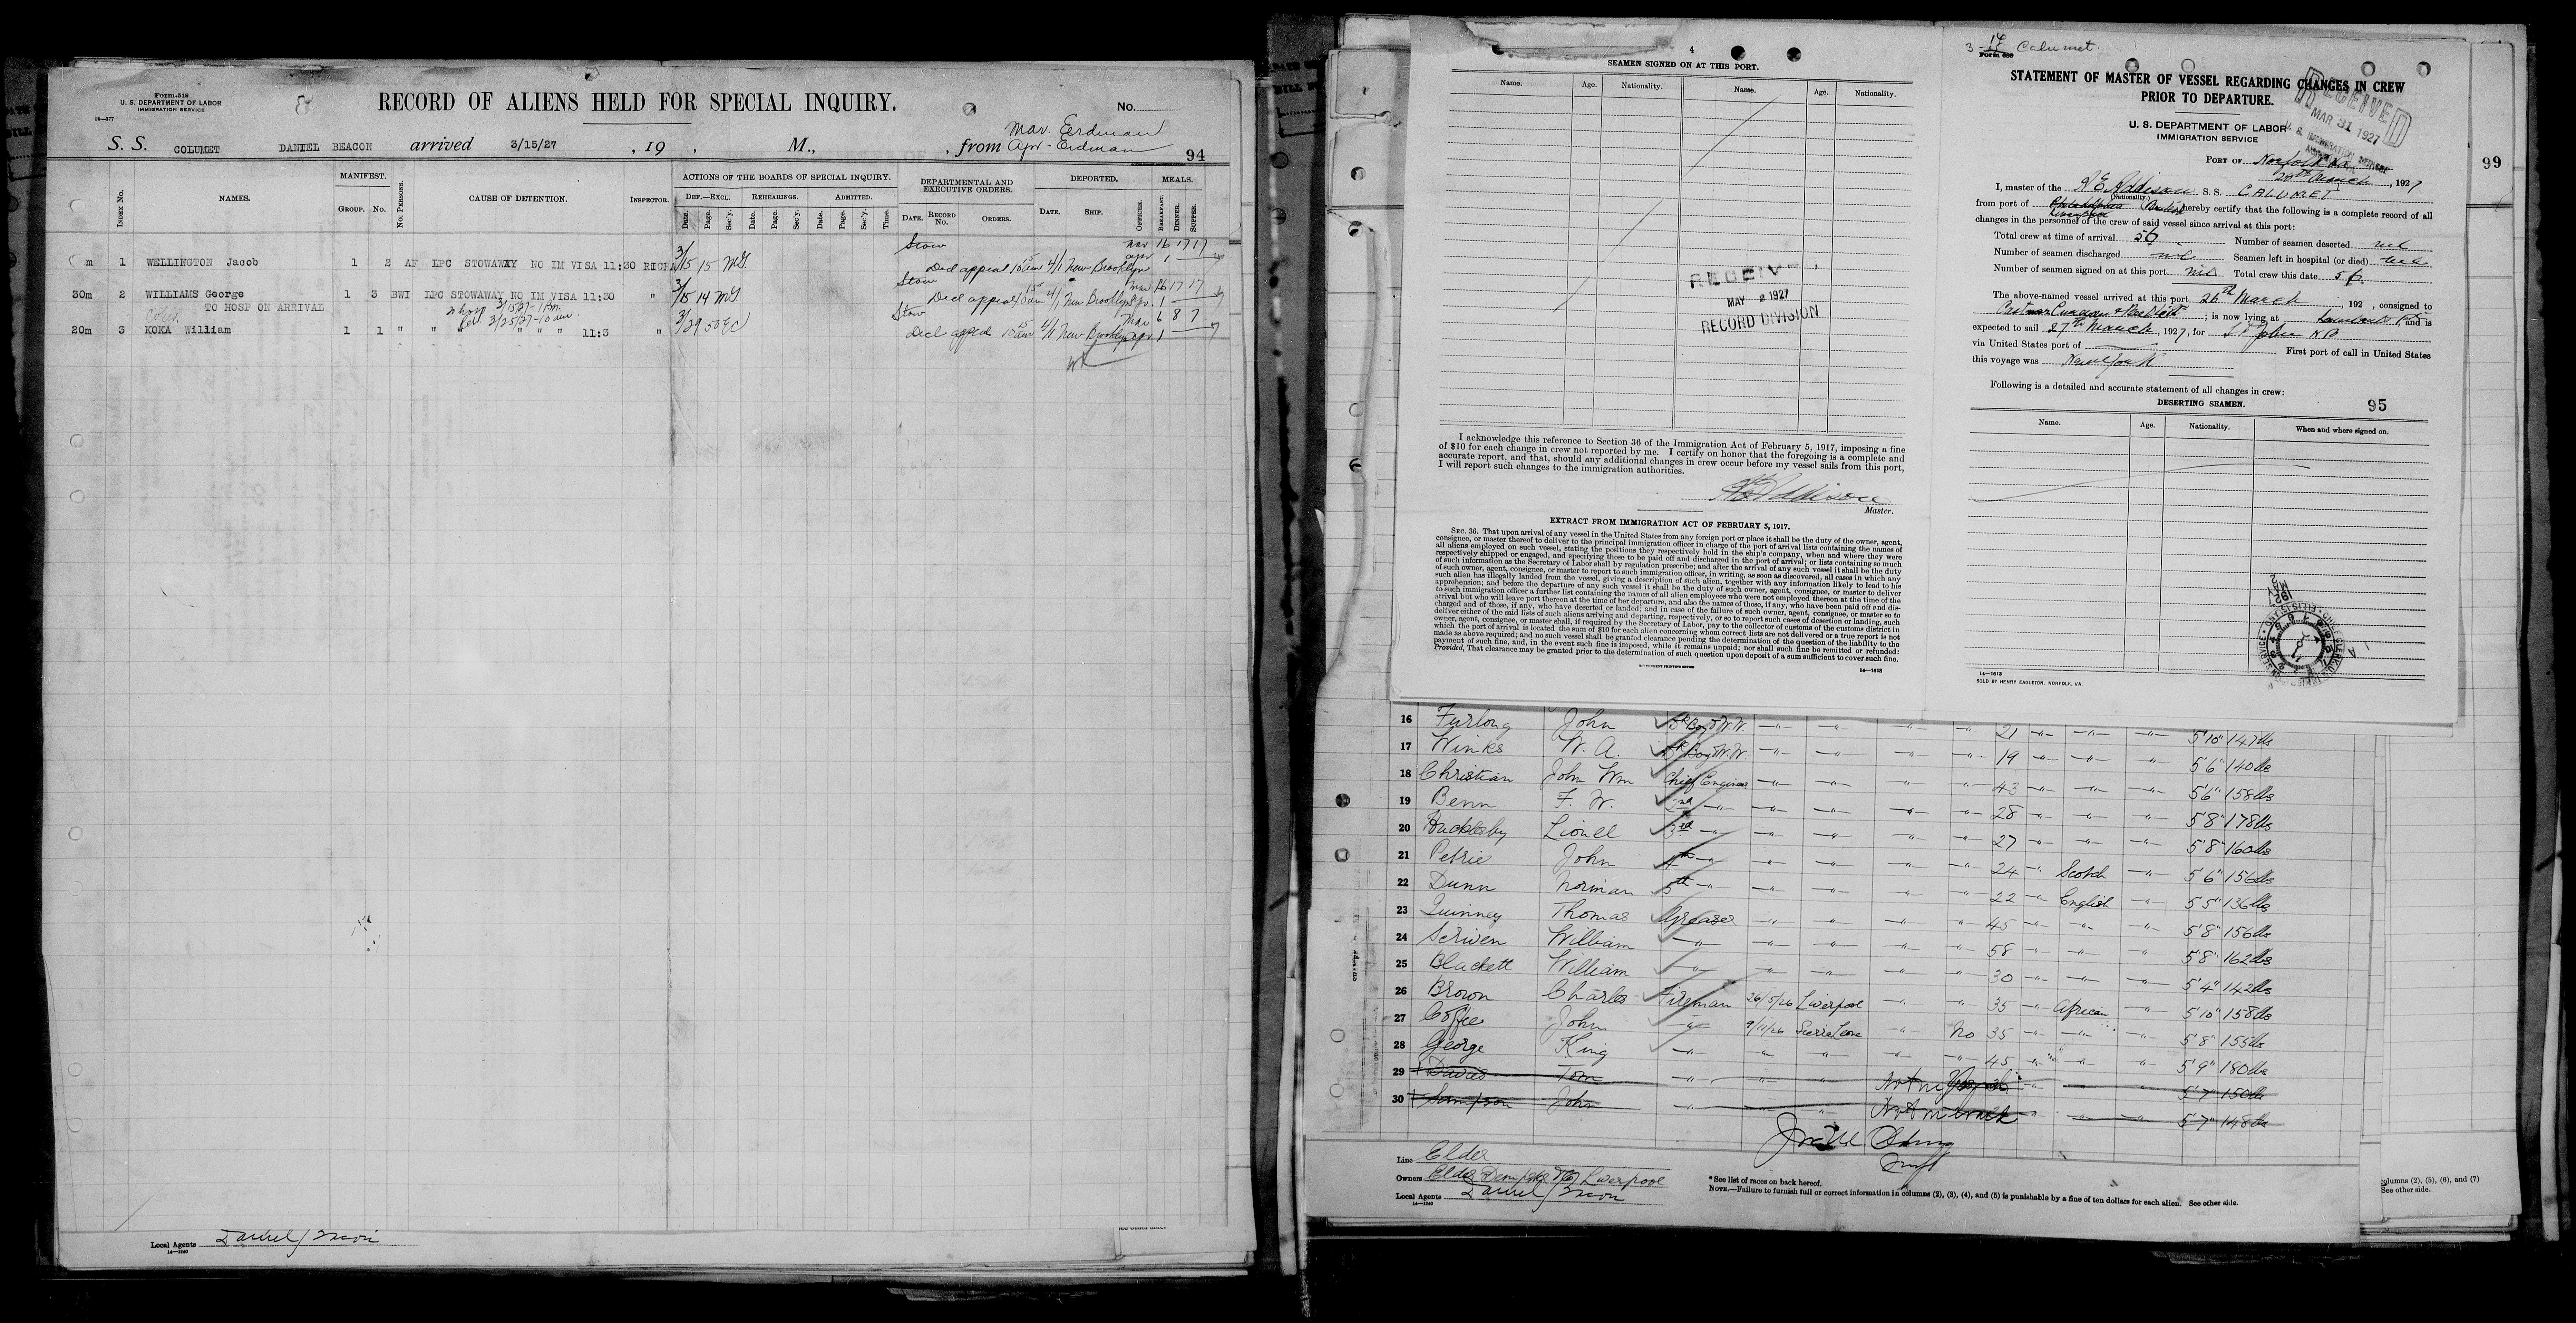 Form 518
U. S. DEPARTMENT OF LABOR
IMMIGRATION SERVICE
14—377
RECORD OF ALIENS HELD FOR SPECIAL INQUIRY.
No.
S. S. COLUMET DANIEL BEACON arrived 3/15/27, 19 , M., , from Mar. Eerdman
Apr - Erdman
94
Index No. NAMES. MANIFEST. GROUP. No. No. PERSONS. CAUSE OF DETENTION. INSPECTOR. ACTIONS OF THE BOARDS OF SPECIAL INQUIRY. DEF.—EXCL. REHEARINGS. ADMITTED. Date. Page. Sec'y. Date. Page. Sec'y. Date. Page. Sec'y. Time. DEPARTMENTAL AND EXECUTIVE ORDERS. DATE. RECORD No. ORDERS. DEPORTED. DATE. SHIP. OFFICER. MEALS. BREAKFAST. DINNER. SUPPER.
Stow Mar 16 17 17
m 1 WELLINGTON Jacob 1 2 AF LPC STOWAWAY NO IM VISA 11:30 RICH 3/15 15 MG Decl appeal 10 15 am 4/1 New Brooklyn apr 1
Stow Mar 16 17 17
30m 2 WILLIAMS George 1 3 BWI LPC STOWAWAY NO IM VISA 11:30 " 3/15 14 MG Decl appeal 10 15 am 4/1 New Brooklyn apr. 1
TO HOSP ON ARRIVAL To hosp 3/15/27-1 pm. Stow Mar 6 8 7
Rel. 3/25/27-10 am.
20m 3 KOKA William 1 1 " " " " " " 11:3 " 3/29 50 EC Decl appeal 10 15 am 4/1 New Brooklyn apr 1
Local Agents Daniel Bacon
14—1240
4
SEAMEN SIGNED ON AT THIS PORT.
Name. Age. Nationality. Name. Age. Nationality.
RECEIVE
MAY 2 1927
RECORD DIVISION
I acknowledge this reference to Section 36 of the Immigration Act of February 5, 1917, imposing a fine
of $10 for each change in crew not reported by me. I certify on honor that the foregoing is a complete and
accurate report, and that, should any additional changes in crew occur before my vessel sails from this port,
I will report such changes to the immigration authorities.
Addison
Master.
EXTRACT FROM IMMIGRATION ACT OF FEBRUARY 5, 1917.
SEC. 36. That upon arrival of any vessel in the United States from any foreign port or place it shall be the duty of the owner, agent,
consignee, or master thereof to deliver to the principal immigration officer in charge of the port of arrival lists containing the names of
all aliens employed on such vessel, stating the positions they respectively hold in the ship's company, when and where they were
respectively shipped or engaged, and specifying those to be paid off and discharged in the port of arrival; or lists containing so much
of such information as the Secretary of Labor shall by regulation prescribe; and after the arrival of any such vessel it shall be the duty
of such owner, agent, consignee, or master to report to such immigration officer, in writing, as soon as discovered, all cases in which any
such alien has illegally landed from the vessel, giving a description of such alien, together with any information likely to lead to his
apprehension; and before the departure of any such vessel it shall be the duty of such owner, agent, consignee, or master to deliver
to such immigration officer a further list containing the names of all alien employees who were not employed thereon at the time of the
arrival but who will leave port thereon at the time of her departure, and also the names of those, if any, who have been paid off and dis-
charged and of those, if any, who have deserted or landed; and in case of the failure of such owner, agent, consignee, or master so to
deliver either of the said lists of such aliens arriving and departing, respectively, or so to report such cases of desertion or landing, such
owner, agent, consignee, or master shall, if required by the Secretary of Labor, pay to the collector of customs of the customs district in
which the port of arrival is located the sum of $10 for each alien concerning whom correct lists are not delivered or a true report is not
made as above required; and no such vessel shall be granted clearance pending the determination of the question of the liability to the
payment of such fine, and, in the event such fine is imposed, while it remains unpaid; nor shall such fine be remitted or refunded:
Provided, That clearance may be granted prior to the determination of such question upon deposit of a sum sufficient to cover such fine.
GOVERNMENT PRINTING OFFICE
14—1613
3 - 14 Calumet
Form 689
STATEMENT OF MASTER OF VESSEL REGARDING CHANGES IN CREW
PRIOR TO DEPARTURE.
RECEIVED
MAR 31 1927
U. S. DEPARTMENT OF LABOR
IMMIGRATION SERVICE
PORT OF Norfolk Va
26th March, 1927
99
I, master of the R E Addison S. S. CALUMET
(Nationality.)
from port of British hereby certify that the following is a complete record of all
changes in the personnel of the crew of said vessel since arrival at this port:
Total crew at time of arrival 56 Number of seamen deserted nil
Number of seamen discharged nil Seamen left in hospital (or died) nil
Number of seamen signed on at this port nil Total crew this date 56.
The above-named vessel arrived at this port 26th March, 192 , consigned to
; is now lying at , and is
expected to sail 27th March, 1927, for St John N B
via United States port of First port of call in United States
this voyage was New York
Following is a detailed and accurate statement of all changes in crew:
DESERTING SEAMEN. 95
Name. Age. Nationality. When and where signed on.
14—1613
SOLD BY HENRY EAGLETON, NORFOLK, VA.
MAY 2 1927
16 Furlong John 21 5'10" 147 lbs
17 Winks W. A. 19 5'6" 140 lbs
18 Christian John Wm Chief Engineer 43 5'6" 158 lbs
19 Benn F. W. 2nd 28 5'8" 178 lbs
20 Huddlesby Lionel 3rd 27 5'8" 160 lbs
21 Petrie John 4th 24 Scotch 5'6" 156 lbs
22 Dunn Norman 5th 22 English 5'5" 136 lbs
23 Quinney Thomas Greaser 45 5'8" 156 lbs
24 Scriven William 58 5'8" 162 lbs
25 Blackett William 30 5'4" 142 lbs
26 Brown Charles Fireman 26/5/26 Liverpool 35 African 5'10" 158 lbs
27 Coffee John 9/11/26 Sierra Leone No 35 5'8" 155 lbs
28 George King 45 5'9" 180 lbs
29 Davies Tom 5'7" 150 lbs
30 Sampson John 5'7" 148 lbs
Line Elder
Owners Elder Dempster & Co Liverpool
Local Agents Daniel Bacon
14—1240
* See list of races on back hereof.
NOTE.—Failure to furnish full or correct information in columns (2), (3), (4), and (5) is punishable by a fine of ten dollars for each alien. See other side.
columns (2), (5), (6), and (7)
See other side.